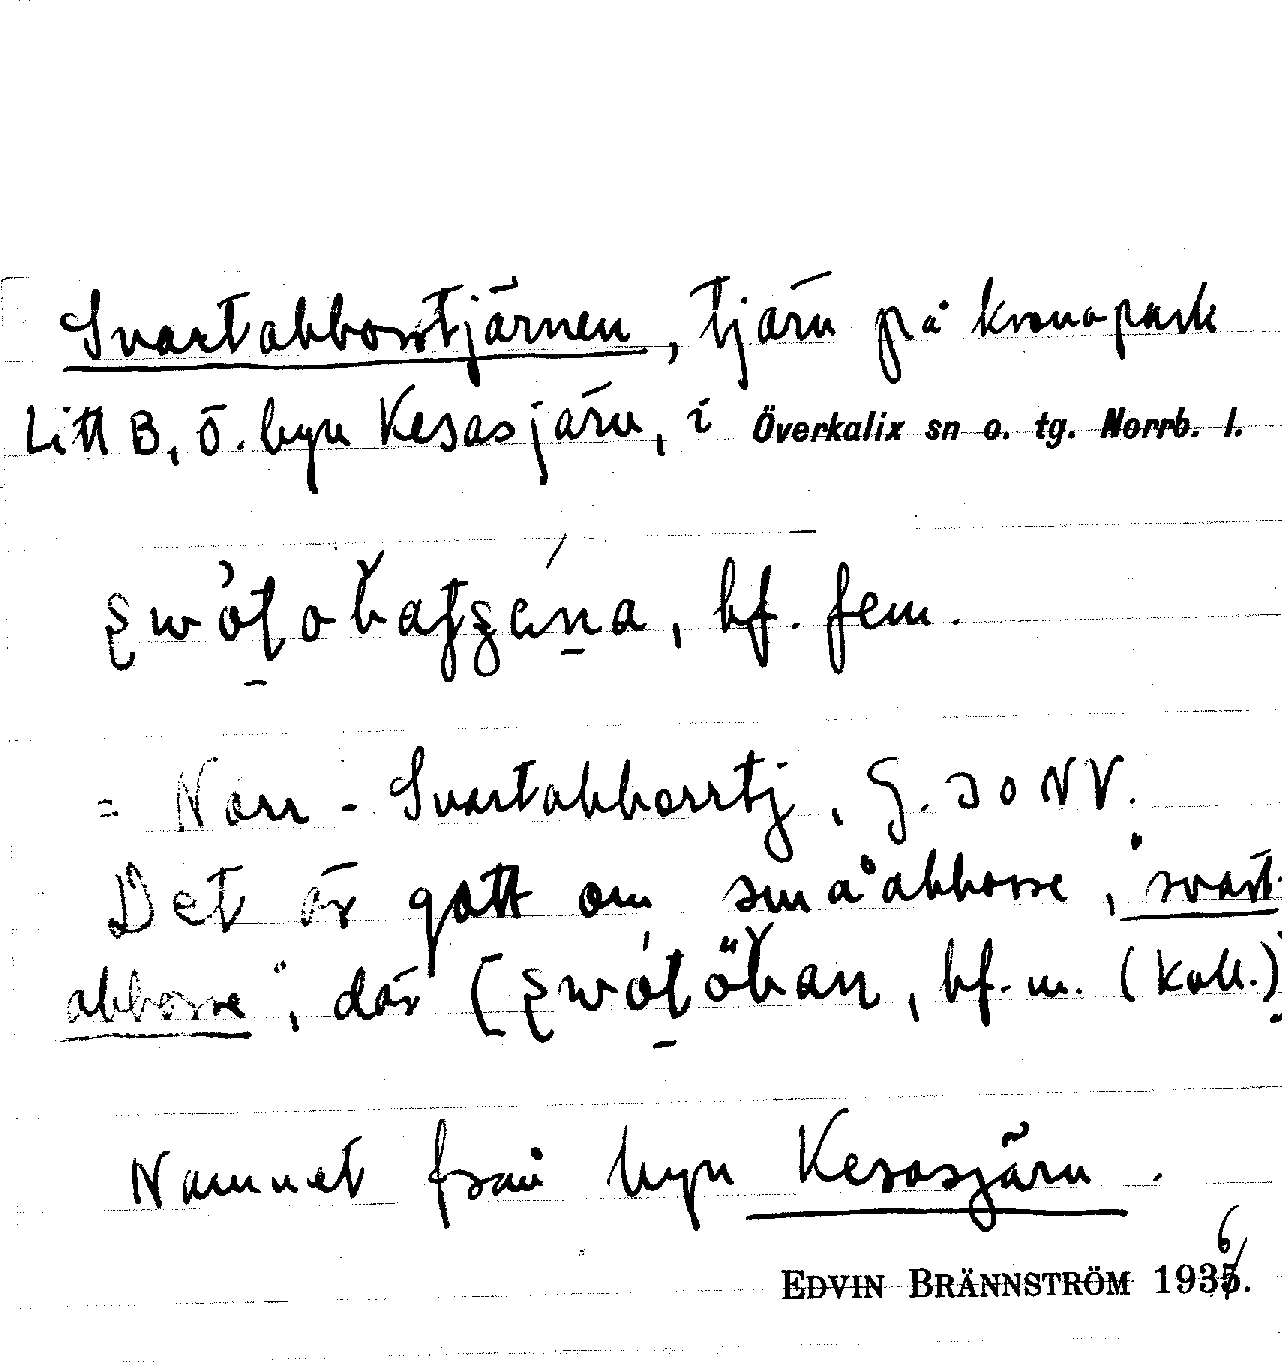 Svartabborrtjärnen, tjärn på kronopark
Litt B, ö. byn Kesasjärn, i Överkalix sn o. tg. Norrb. l.
bf. fem.
= Norr-Svartabborrtj. G. 30 NV.
Det är gott om småabborre, "svart-
abborre", där ( bf. m. (koll.)
Namnet från byn Kesasjärn.
EDVIN BRÄNNSTRÖM 1936.